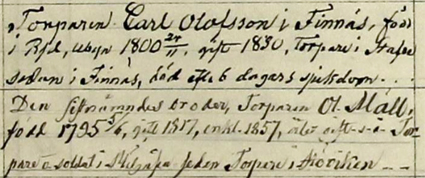 Torparen Carl Olofsson i Finnäs, född
i Bjd, ubyn 1800 24/11 gift 1830, Torpare i
sedan i Finnäs, död efter 6 dagars sjukdom . . .
Den sistnämndes broder, Torparen Ol. Mäll,
född 1795 5/6, gift 1817, enkl. 1857, äfv.
pare o soldat i sedan Torpare i